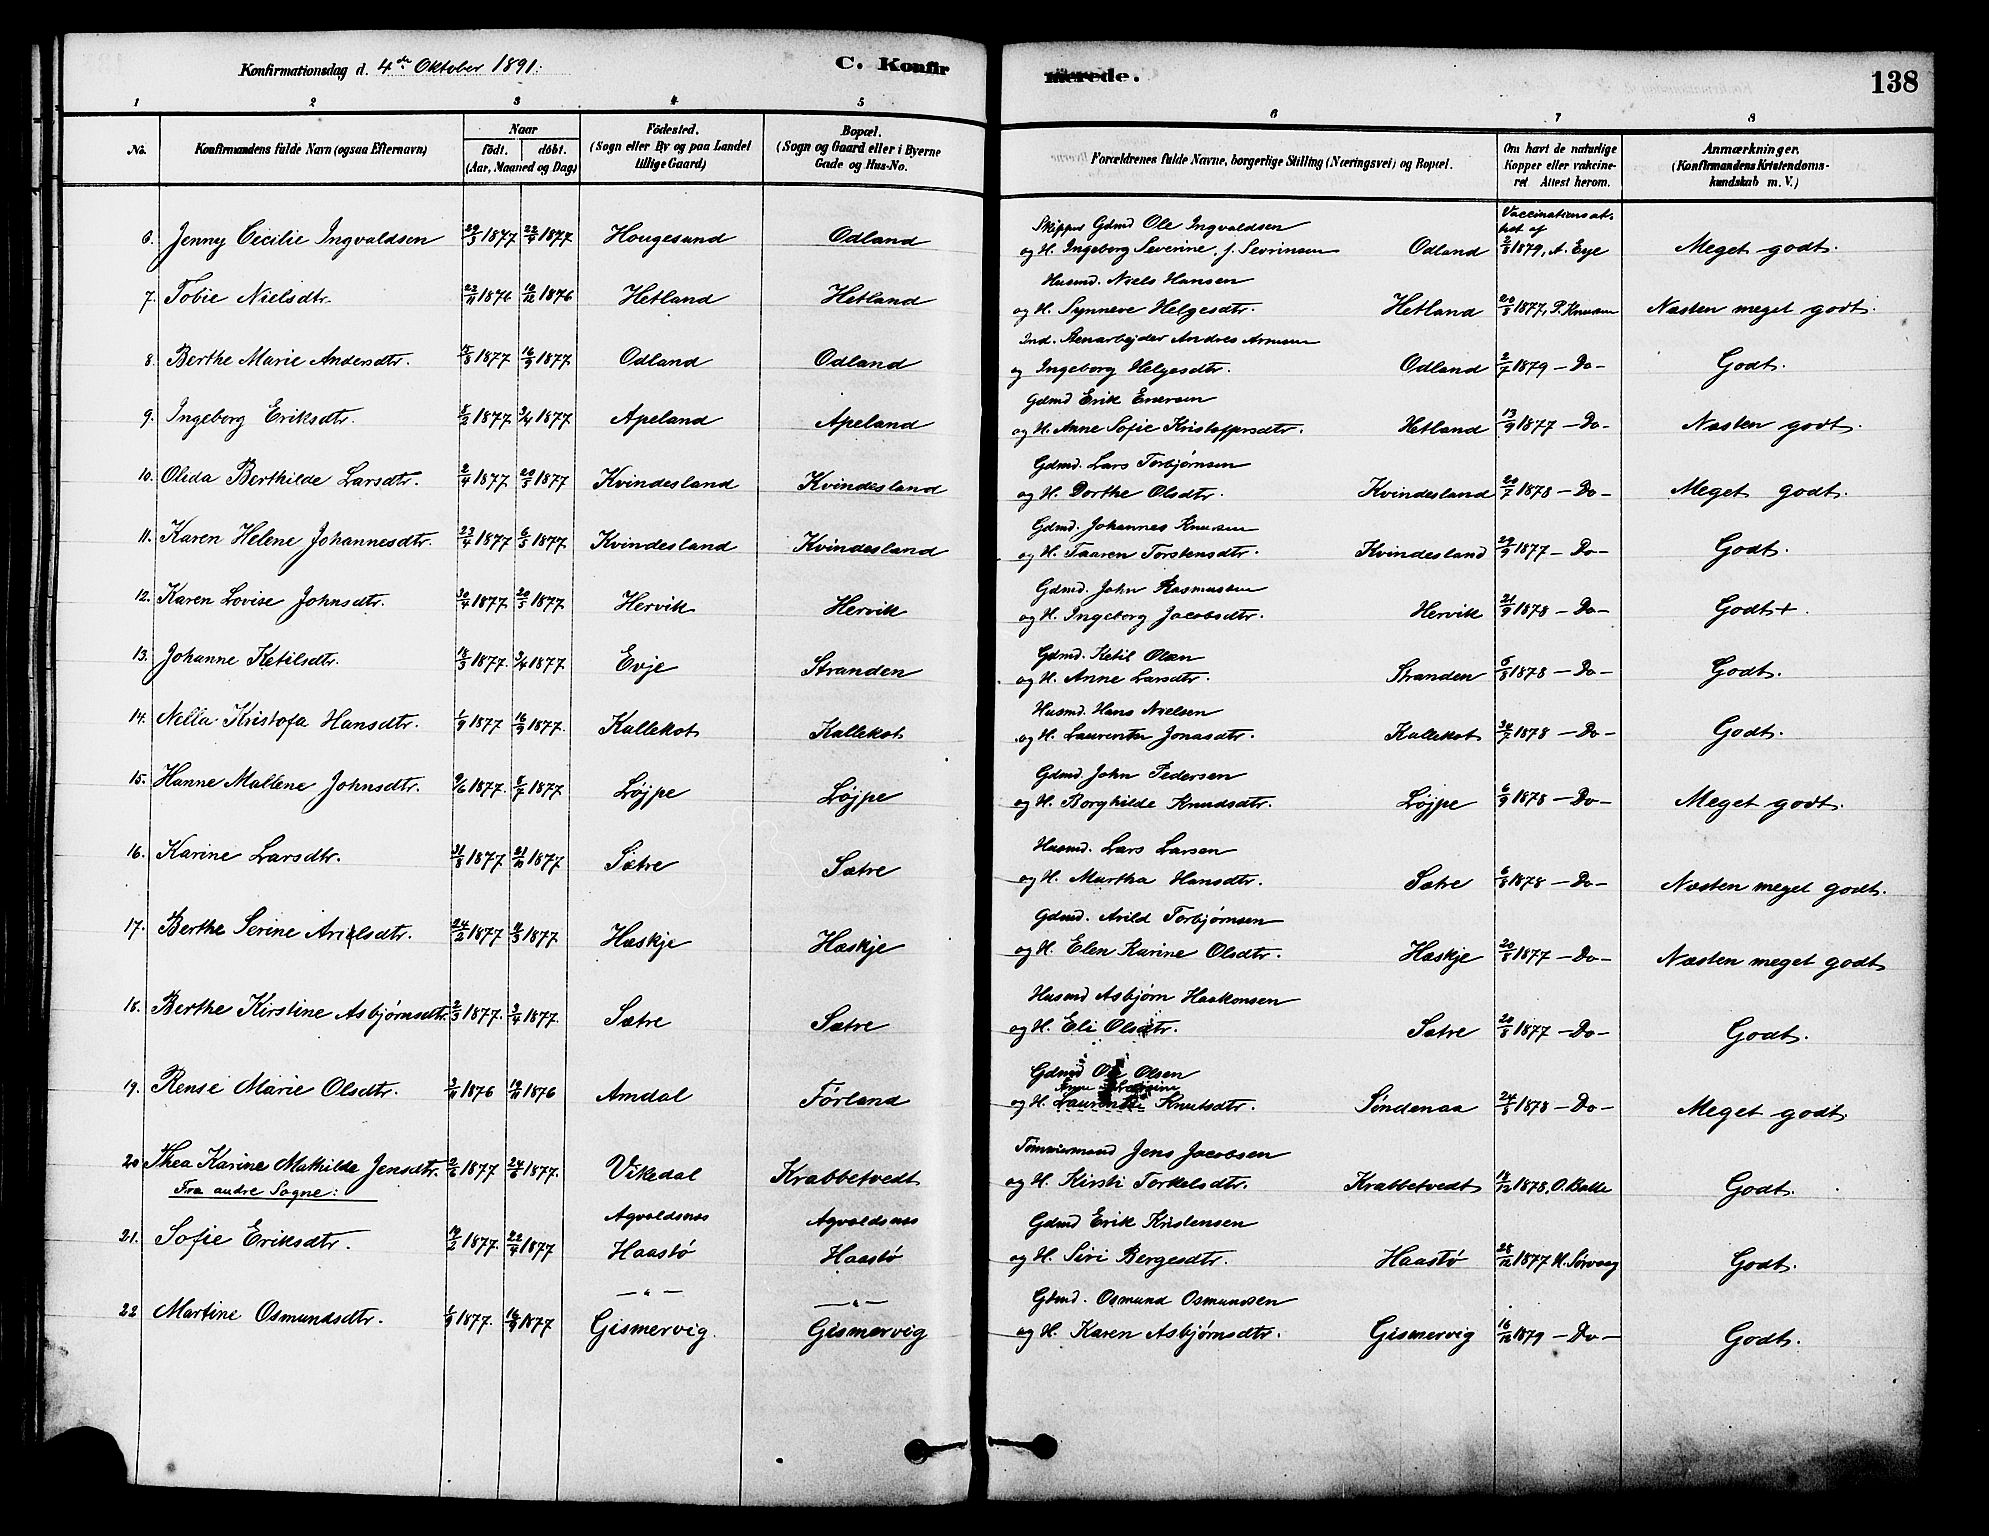 Konfirmationsdag d. 4de Oktober 1891.
C. Konfirmerede.
138
1 2 3 4 5 6 7 8
No.
Konfirmandens fulde Navn (ogsaa Efternavn)
Naar
födt. döbt.
(Aar, Maaned og Dag)
Födested.
(Sogn eller By og paa Landet
tillige Gaard)
Bopæl.
(Sogn og Gaard eller i Byerne
Gade og Hus-No.
Forældrenes fulde Navne, borgerlige Stilling (Næringsvei) og Bopæl.
Om havt de naturlige
Kopper eller vakcine-
ret Attest herom.
Anmærkninger.
(Konfirmandens Kristendoms-
kundskab m. V.)
Vaccinationsat-
test af
Skipper Gdmd Ole Ingvaldsen
6. Jenny Cecilie Ingvaldsen 1877 22/4 1877 Hougesund Odland og H. Ingeborg Severine, f. Sevrinsen Odland 1879, A. Eye Meget godt.
Husmd. Niels Hansen
7. Tobie Nielsdtr. 1876 10/12 1876 Hetland Hetland og H. Synneve Helgesdtr. Hetland 1877, P. Knusen Næsten meget godt.
Ind. Stenarbejder Andres Arnesen
8. Berthe Marie Andersdtr. 1877 16/9 1877 Odland Odland og Ingeborg Helgesdtr. Odland 2/7 1879 – Do – Godt.
Gdmd Erik Enersen
9. Ingeborg Eriksdtr. 8/2 1877 2/4 1877 Apeland Apeland og H. Anne Sofie Kristoffersdtr. Hetland 13/9 1877 – Do – Næsten godt.
Gdmd. Lars Torbjørnsen
10. Olida Berthilde Larsdtr. 2/4 1877 20/5 1877 Kvindesland Kvindesland og H. Dorthe Olsdtr. Kvindesland 20/7 1878 – Do – Meget godt.
Gdmd. Johannes Knursen
11. Karen Helene Johannesdtr. 23/4 1877 6/5 1877 Kvindesland Kvindesland og H. Taaren Torstensdtr. Kvindesland 1877 – Do – Godt.
Gdmd. John Rasmussen
12. Karen Lovise Johnsdtr. 30/4 1877 20/5 1877 Hervik Hervik og H. Ingeborg Jacobsdtr. Hervik 21/9 1878 – Do – Godt+.
Gdmd. Ketil Olsen
13. Johanne Ketilsdtr. 18/3 1877 2/4 1877 Evje Stranden og H. Anne Larsdtr. Stranden 1878 – Do – Godt.
Husmd. Hans Nielsen
14. Nella Kristofa Hansdtr. 1/9 1877 16/9 1877 Kallekot Kallekot og H. Laurentse Jonasdtr. Kallekot 1878 – Do – Godt.
Gdmd. John Pedersen
15. Hanne Mallene Johnsdtr. 9/6 1877 8/7 1877 Løjpe Løjpe og H. Borghilde Knudsdtr. Løjpe 6/9 1878 – Do – Meget godt.
Husmd. Lars Larsen
16. Karine Larsdtr. 31/8 1877 21/10 1877 Sætre Sætre og H. Martha Hansdtr. Sætre 6/8 1878 – Do – Næsten meget godt.
Gdmd. Arild Torbjørnsen
17. Berthe Serine Arilsdtr. 24/2 1877 1877 Hæskje Hæskje og H. Elen Karine Olsdtr. Hæskje 20/8 1877 – Do – Næsten meget godt
Husmd Asbjørn Haakonsen
18. Berthe Kirstine Asbjørnsdtr. 2/3 1877 2/4 1877 Sætre Sætre og H. Eli Olsdtr. Sætre 20/8 1877 – Do – Godt.
Gdmd Ole Olsen
19. Rense Marie Olsdtr. 1876 19/11 1876 Amdal Førland og H. Knutsdtr. Søndenaa 24/8 1878 – Do – Meget godt.
Tømmermand Jens Jacobsen
20 Thea Karine Mathilde Jensdtr. 2/6 1877 24/6 1877 Vikedal Krabbetvedt og H. Kirsti Torkelsdtr. Krabbetvedt 1878, O. Balle Godt.
Fra andre Sogne:
Agvaldsnes Agvaldsnes Gdmd Erik Kristensen
21. Sofie Eriksdtr. 19/2 1877 22/4 1877 Haastø Haastø og H. Siri Bergesdtr. Haastø 28/12 1877 H. Sørvaag Godt.
— " — — " — Gdmd. Osmund Osmundsen
22 Martine Osmundsdtr. 1/9 1877 16/9 1877 Gismervig. Gismervig og H. Karen Asbjørnsdtr. Gismervig 16/12 1879 – Do – Godt.